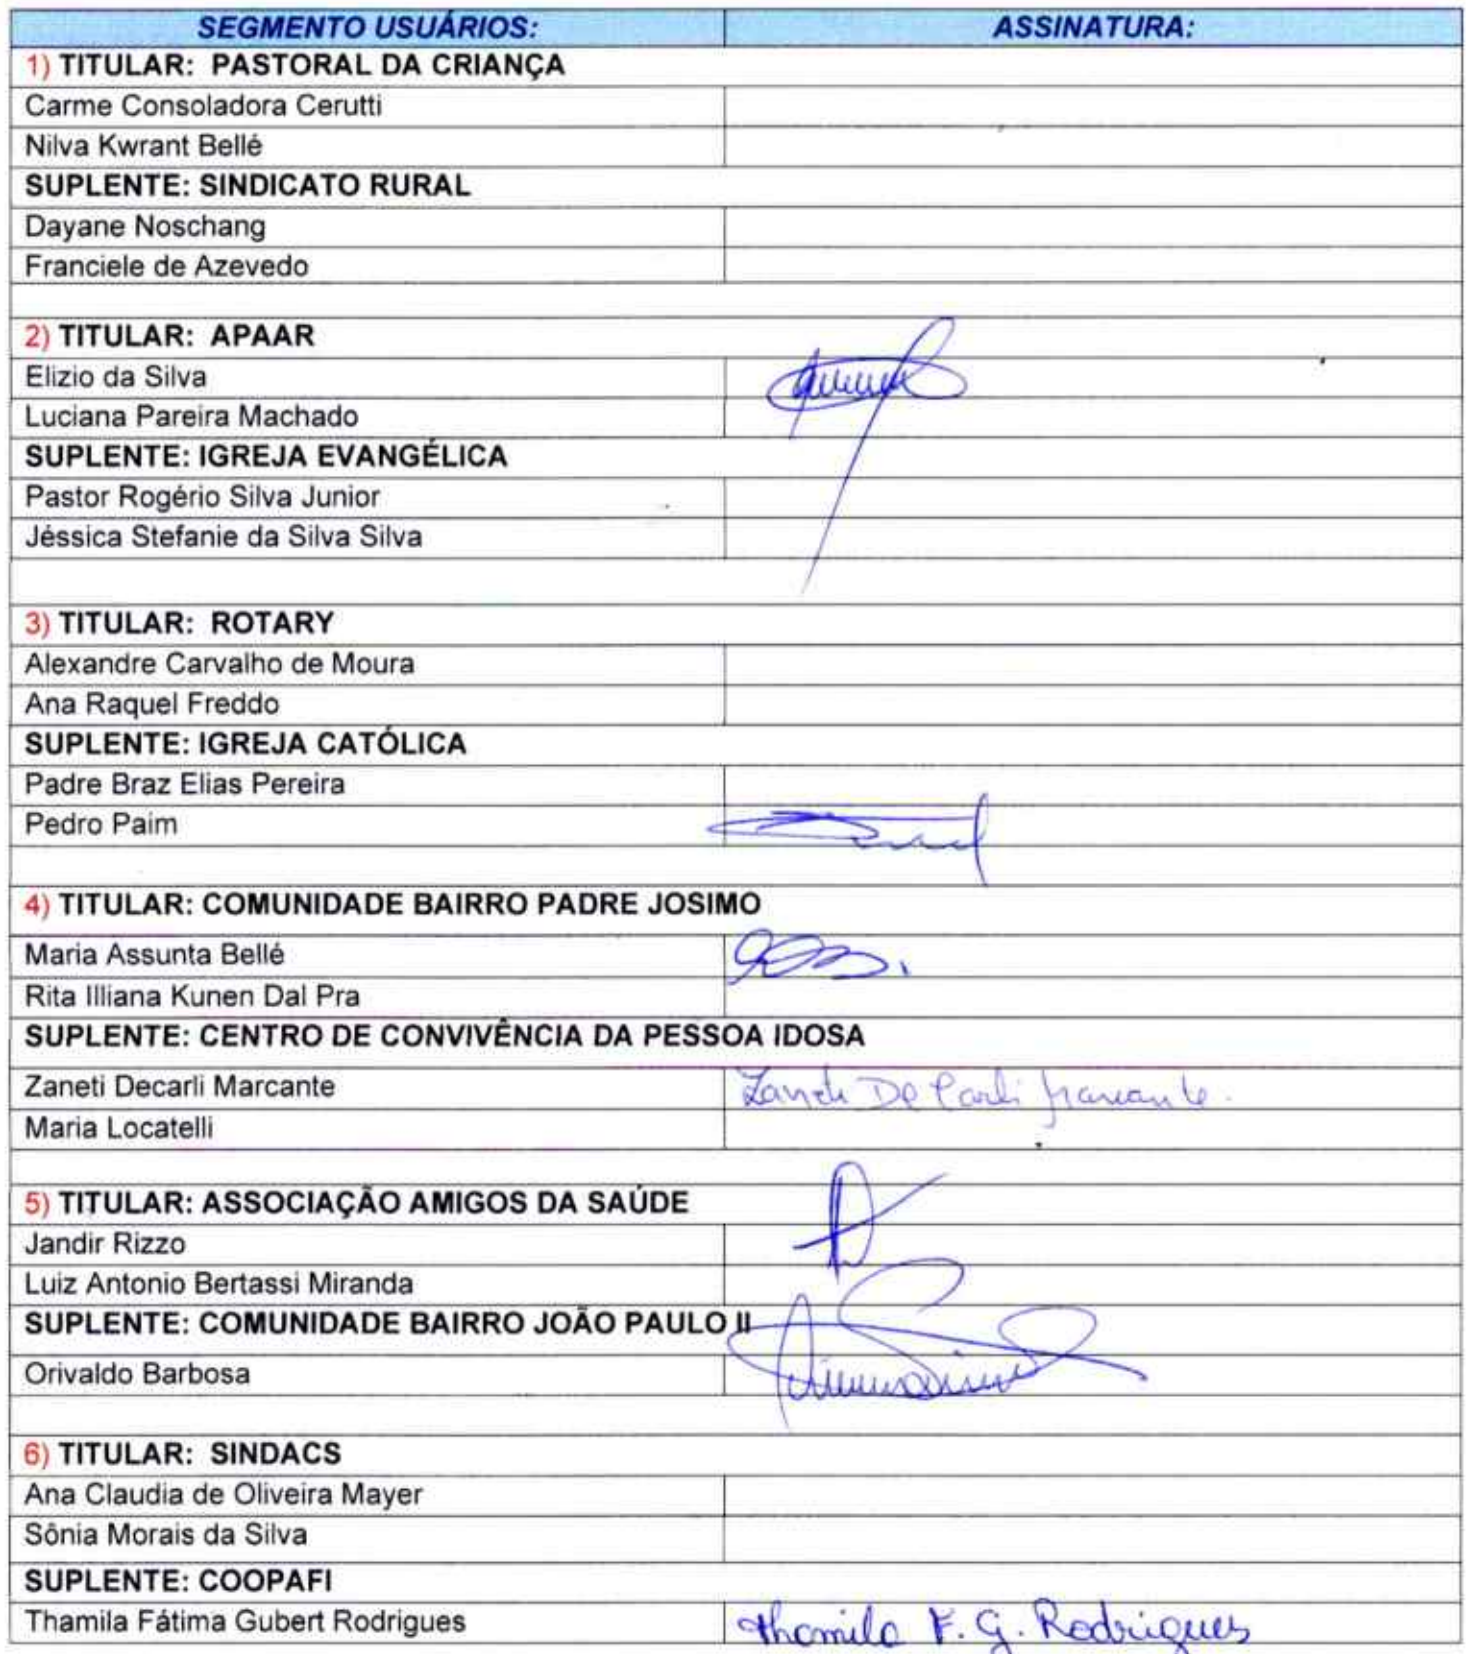 SEGMENTO USUÁRIOS: ASSINATURA:
1) TITULAR: PASTORAL DA CRIANÇA
Carme Consoladora Cerutti
Nilva Kwrant Bellé
SUPLENTE: SINDICATO RURAL
Dayane Noschang
Franciele de Azevedo
2) TITULAR: APAAR
Elizio da Silva
Luciana Pareira Machado
SUPLENTE: IGREJA EVANGÉLICA
Pastor Rogério Silva Junior
Jéssica Stefanie da Silva Silva
3) TITULAR: ROTARY
Alexandre Carvalho de Moura
Ana Raquel Freddo
SUPLENTE: IGREJA CATÓLICA
Padre Braz Elias Pereira
Pedro Paim
4) TITULAR: COMUNIDADE BAIRRO PADRE JOSIMO
Maria Assunta Bellé
Rita Illiana Kunen Dal Pra
SUPLENTE: CENTRO DE CONVIVÊNCIA DA PESSOA IDOSA
Zaneti Decarli Marcante De Carli Marcante.
Maria Locatelli
5) TITULAR: ASSOCIAÇÃO AMIGOS DA SAÚDE
Jandir Rizzo
Luiz Antonio Bertassi Miranda
SUPLENTE: COMUNIDADE BAIRRO JOÃO PAULO II
Orivaldo Barbosa
6) TITULAR: SINDACS
Ana Claudia de Oliveira Mayer
Sônia Morais da Silva
SUPLENTE: COOPAFI
Thamila Fátima Gubert Rodrigues Thamila F. G. Rodrigues